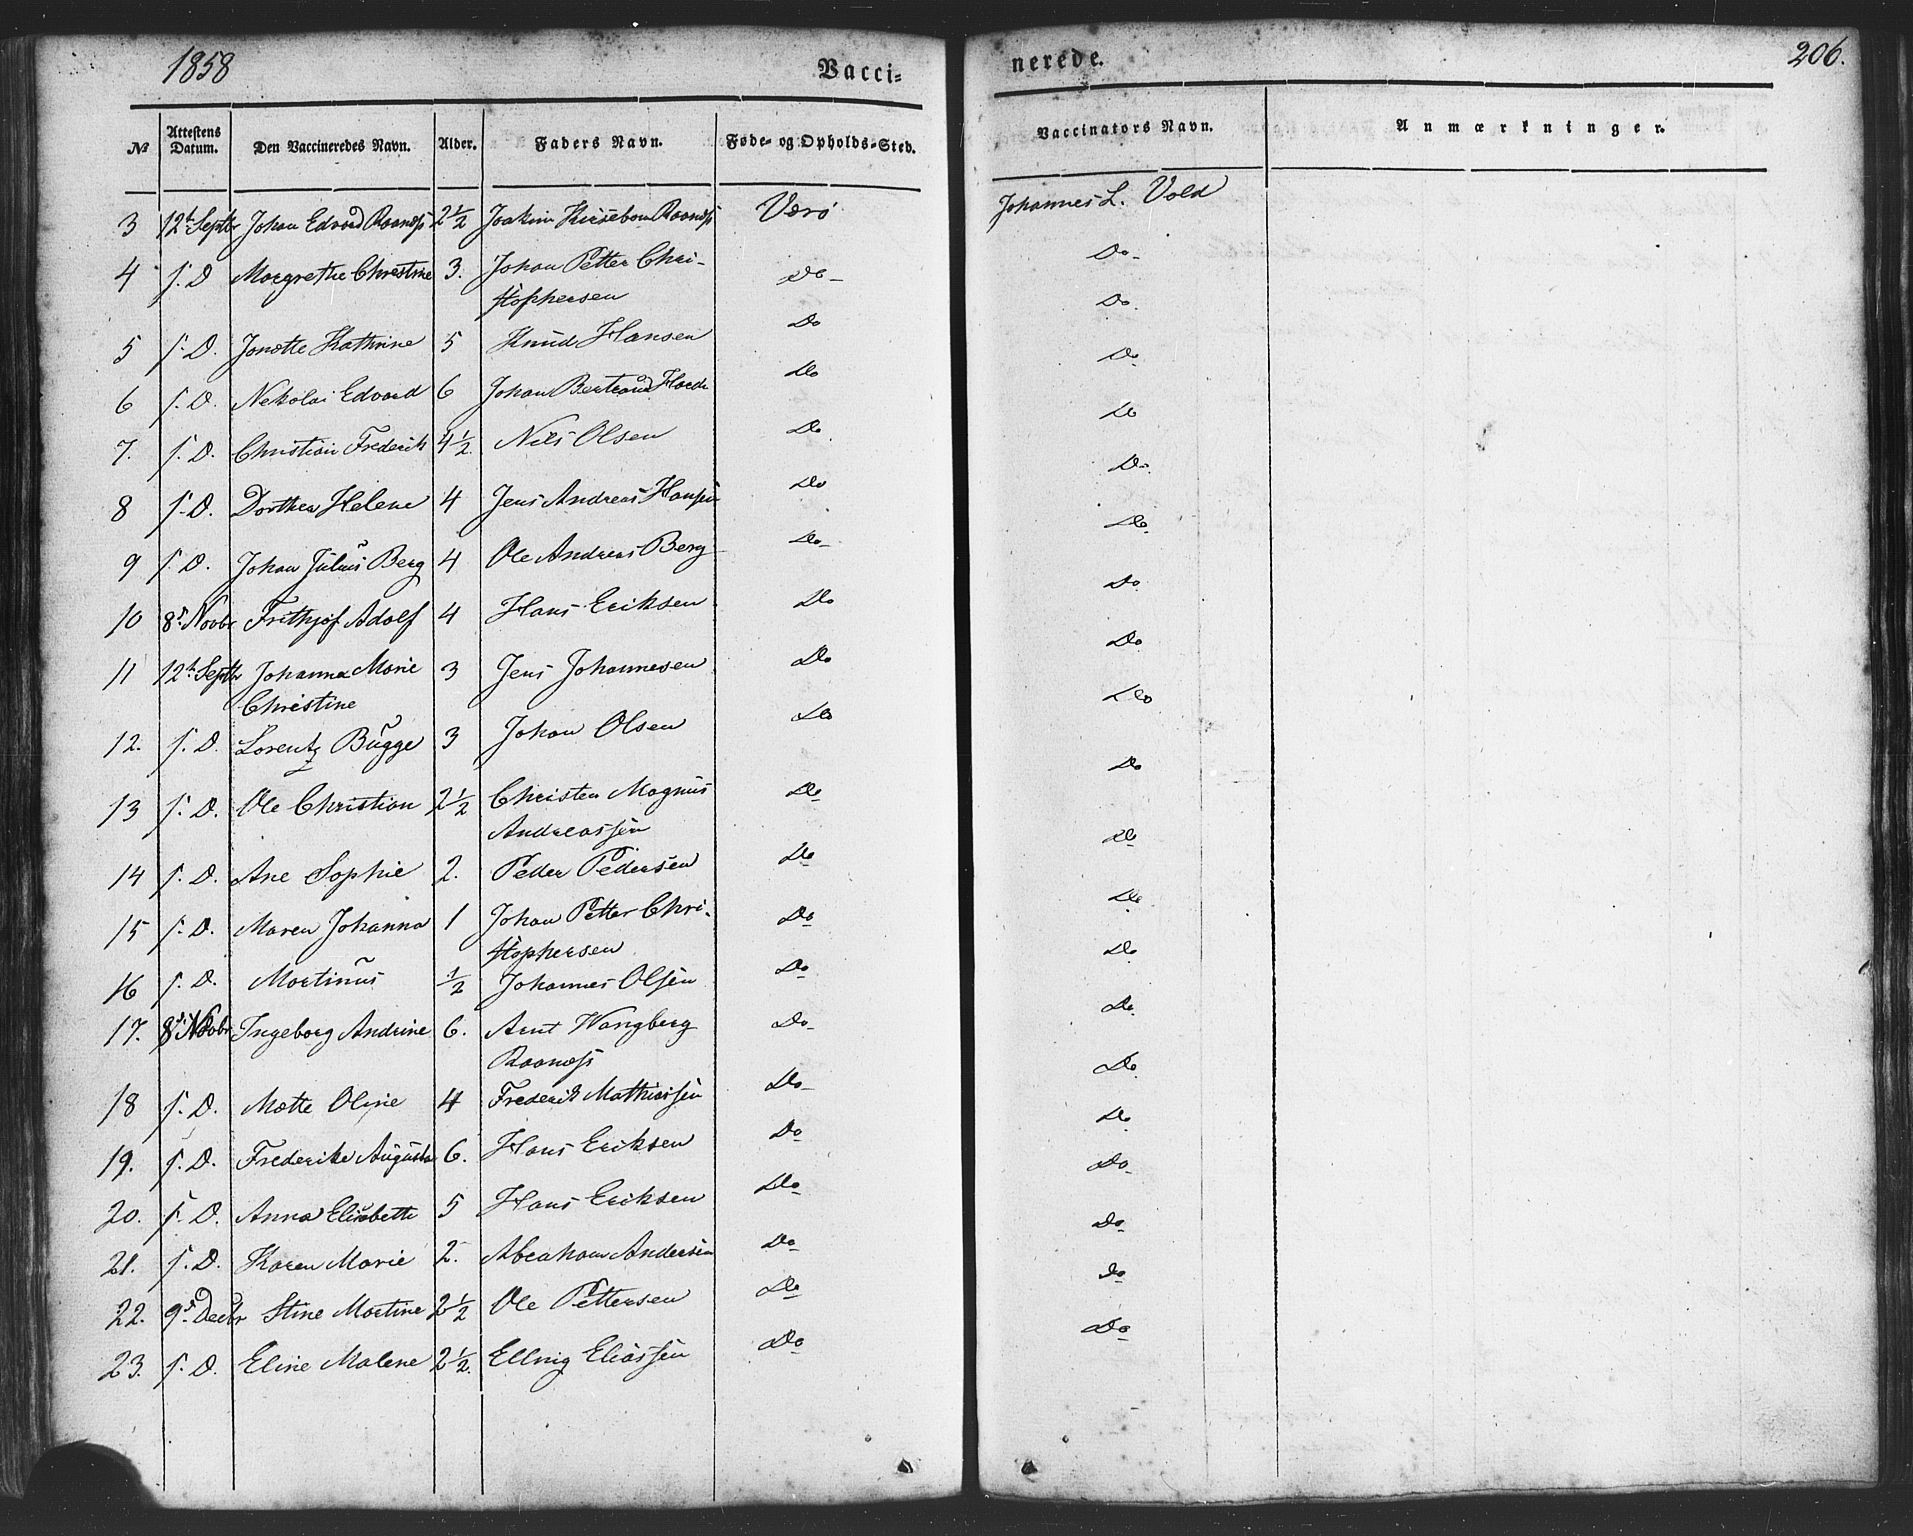 1858 Vacci= nerede. 206.
№ Attestens Datum. Den Vaccineredes Navn. Alder. Faders Navn. Føde= og Opholds=Sted. Vaccinators Navn. Anmærkninger.
3 12te Septbr Johan Edvard 2½ Joakim Værø Johannes L. Vold
4 s. D Margrethe Christine 3. Johan Petter Chri- Do Do
stophersen
5 s. D. Jonette Kathrine 5 Knud Hansen Do Do
6 s. D. Nekolai Edvard 6 Johan Do Do
7. s. D. Christian Frederik 4½. Nils Olsen Do Do
8 s. D. Dorthea Helene 4 Jens Andreas Hansen Do Do
9 s. D. Johan Julius Berg 4 Ole Andreas Berg Do Do
10 8de Novbr Frithjof Adolf 4 Hans Eriksen Do Do
11 12te Septbr Johanna Marie 3 Jens Johannesen Do Do
Christine
12. s. D. Lorentz Bugge 3 Johan Olsen Do Do
13 s. D. Ole Christian 2½ Christen Magnus Do Do
Andreassen
14 s. D. Ane Sophie 2. Peder Pedersen Do Do
15 s. D. Maren Johanna 1 Johan Petter Chri- Do Do
stophersen
16 s. D. Martinus ½ Johannes Olsen Do Do
17. 8de Novbr Ingeborg Andrine 6. Arnt Wangberg Do Do
18 s. D. Mette Oline 4 Frederik Mathiassen Do Do
19. s. D. Frederike Augusta 6. Hans Eriksen Do Do
20. s. D. Anna Elisabeth 5 Hans Eriksen Do Do
21. s. D. Karen Marie 2. Abraham Andersen Do Do
22. 9de Decbr Stine Martine 2½ Ole Pettersen Do Do
23. s. D. Eline Malene 2½. Elling Eliassen Do Do